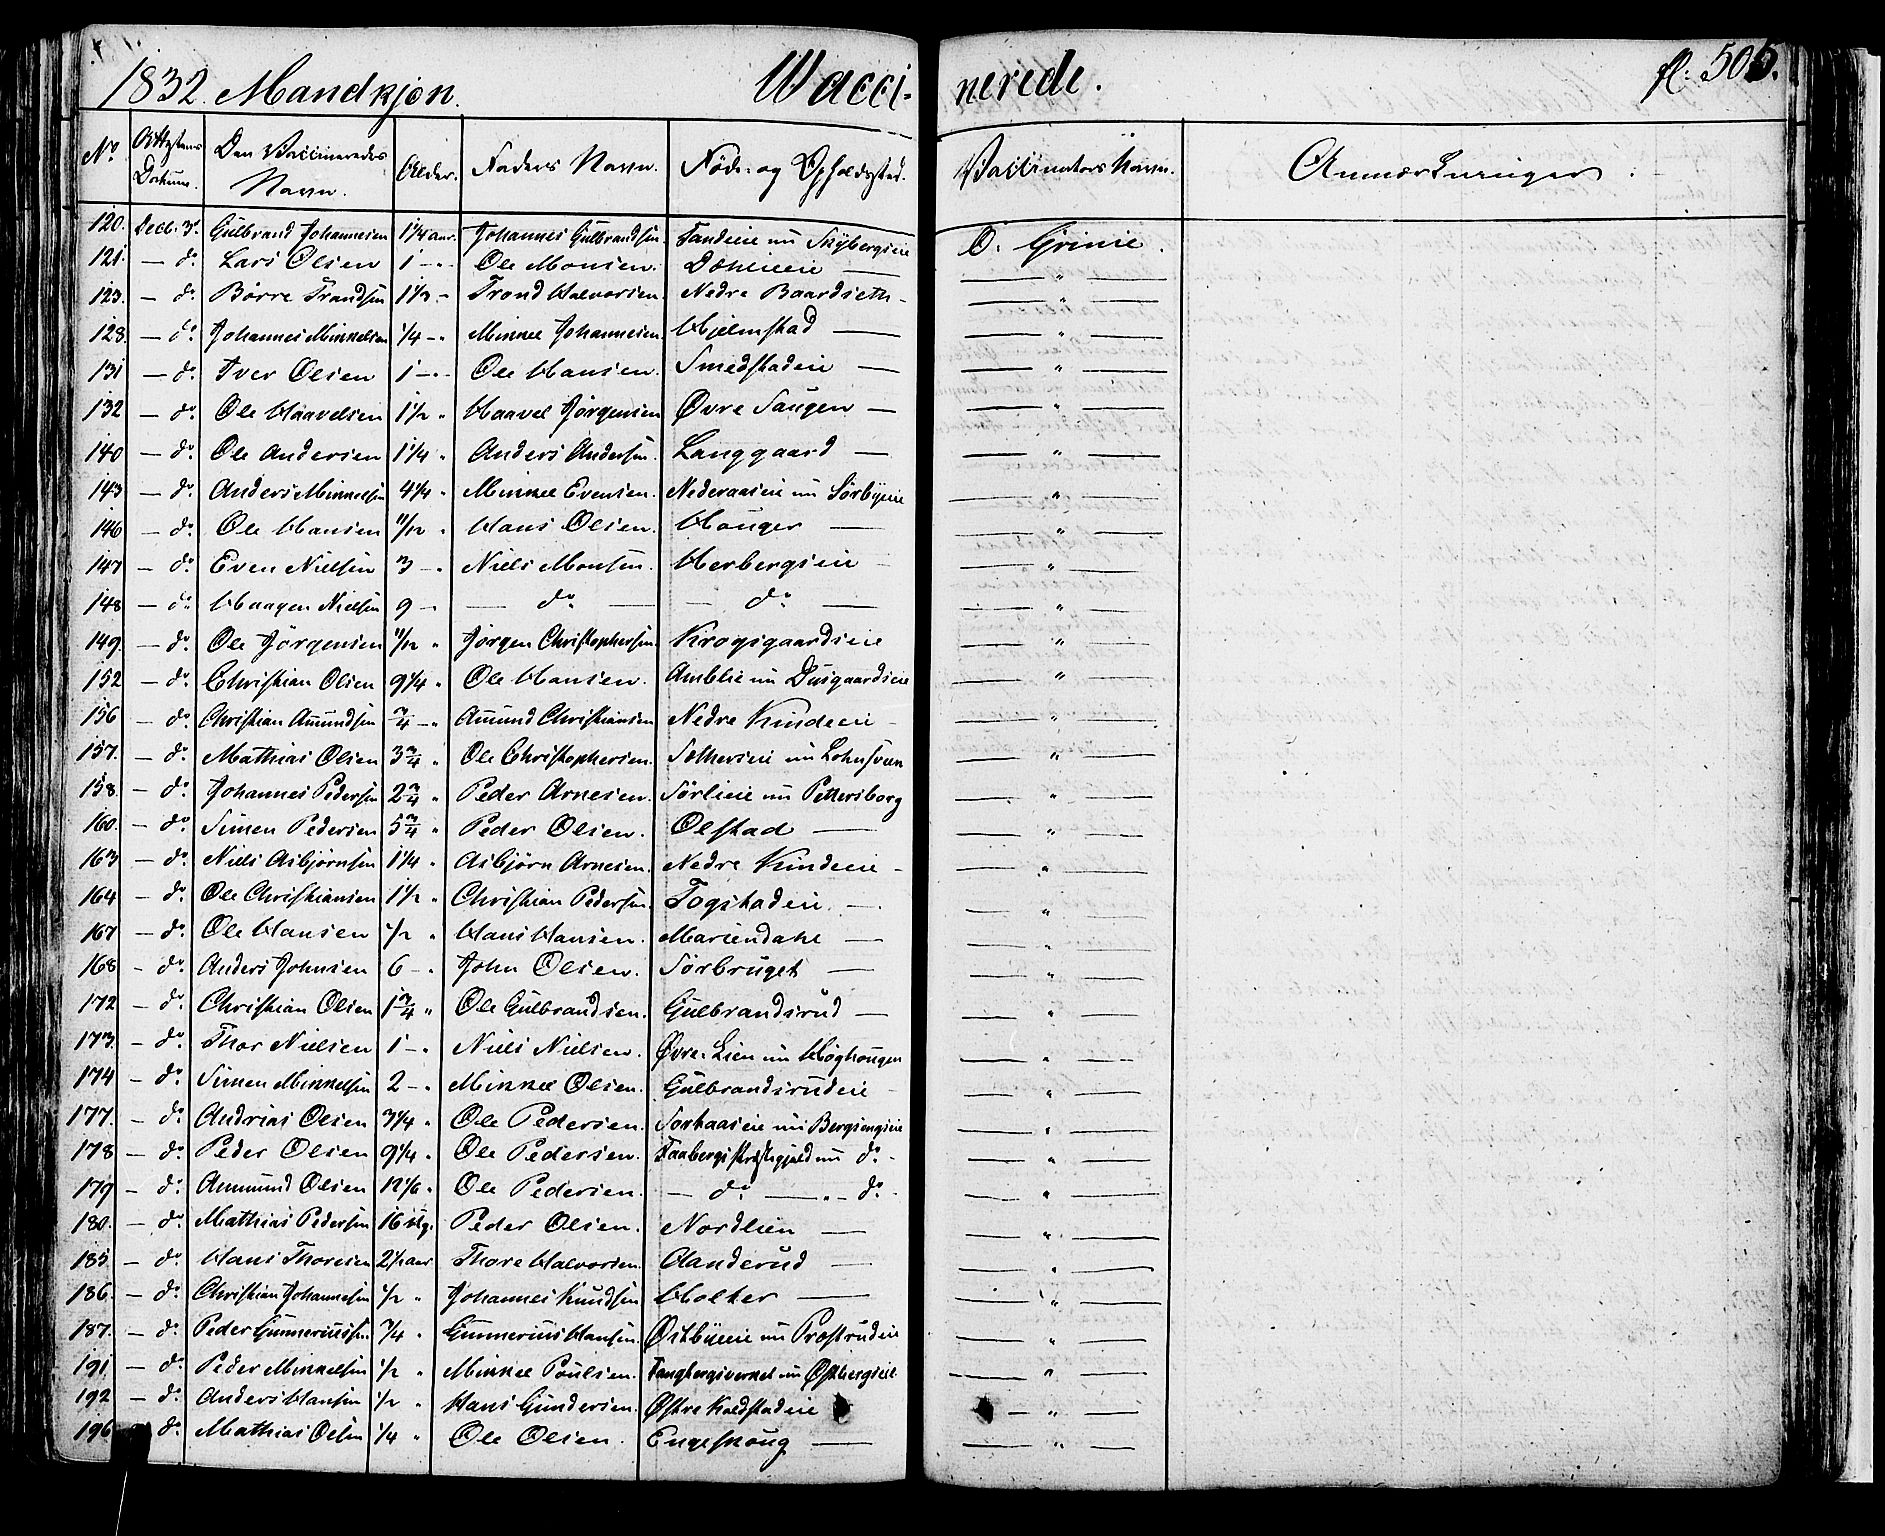 1832. Mandkjøn. Wacci- nerede. fl: 505.
No Attestens Datum. Den Vaccineredes Navn. Alder. Faders Navn. Føde- og Opholdssted. Vaccinators Navn. Anmærkninger.
120. Decb. 31. Gulbrand Johannesen 1 1/4 aar. Johannes Gulbrandsen. Sandeie nu Skybergseie O. Grinie.
121. — do. Lars Olsen 1 — " Ole Monsen. Dæhlieeie — "
123. — do. Børre Trandsen 1 1/3 - Trond Halvorsen. Nedre Baardseth - "
128. — do. Johannes Minkelsen 1/4 - " Minkel Johannesen. Hjelmstad — "
131 — do. Iver Olsen 1 — " Ole Hansen. Smedstadeie — "
132 — do. Ole Haavelsen 1 1/2 " Haavel Jørgensen Øvre Saugen — "
140 — do. Ole Andersen 1 1/4 " Anders Andersen. Langgaard — "
143 — do. Anders Minkelsen 4 1/4 " Minkel Evensen. Nederaaseie nu Sørbyeie "
146 — do. Ole Hansen 11/12 " Hans Olsen. Houger — "
147 — do. Even Nielsen 3 — " Niels Monsen. Herbergseie - "
148 — do. Haagen Nielsen 9 - — do — — do — "
149. — do. Ole Jørgensen 11/12 " Jørgen Christophersen Krogsgaardseie "
152 — do. Christian Olsen 9 1/4 " Ole Hansen. Amblie nu Dusgaardseie "
156 — do. Christian Amundsen 3/4 - " Amund Christiansen Nedre Kindeeie - "
157. — do. Mathias Olsen 3 3/4 " Ole Christophersen. Sætherseie nu Lohnsveen "
158. — do. Johannes Pedersen 2 3/4 " Peder Arnesen. Sørlieie nu Pettersborg "
160. — do. Simen Pedersen 5 3/4 " Peder Olsen. Olstad — "
163 — do. Niels Asbjørnsen 1 1/4 " Asbjørn Arnesen. Nedre Kindeeie - "
164 — do. Ole Christiansen 1 1/2 " Christian Pedersen. Togstadeie — "
167 — do. Ole Hansen 1/2 " Hans Hansen. Mariendahl — "
168 - do. Anders Johnsen 6 - " John Olsen. Sørbruget — "
172 — do. Christian Olsen 1 3/4 " Ole Gulbrandsen. Gulbrandsrud — "
173. — do. Thor Nielsen 1 - " Niels Nielsen. Øvre Lien nu Høghougen "
174 — do. Simen Minkelsen 2 - " Minkel Olsen. Gulbrandsrudeie - "
177. — do. Andrias Olsen 3 1/4 " Ole Pedersen. nu Bergsengseie "
178 — do. Peder Olsen 9 1/4 " Ole Pedersen. Faabergs Præstegjeld nu do - "
179 — do. Ammund Olsen 12 1/6 " Ole Pedersen. — do — " - do - "
180. — do. Mathias Pedersen 16 Ug. Peder Olsen. Nordlien — "
185 — do. Hans Thoresen 2 1/2 aar Thore Halvorsen. Aanderud — "
186. — do. Christian Johannesen 1/2 " Johannes Knudsen Holter — "
187. — do. Peder Gunneriussen 3/4 " Gunnerius Hansen. Østbyeie nu Præsrudeie "
191. — do. Peder Minkelsen 1/2 " Minkel Poulsen. nu Østbergseie "
192 — do. Anders Hansen 1/2 " Hans Gundersen. Østre Koldstadeie "
196 do. Mathias Olsen 1/4 " Ole Olsen. Engeskoug — "